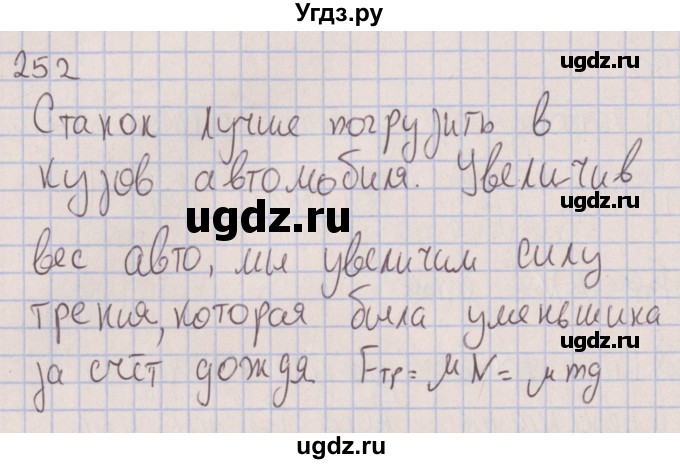 Угдз.ру
252
ugdz.ru
ugdz.ru
Станок лучше погрузить в
кузов автомобиля. Увеличив
ugdz.ru
вес авто, мы увеличим силу
трения, которая была уменьшина
за счёт дождя Fтр = μN = μmg
ugdz.ru
ugdz.ru